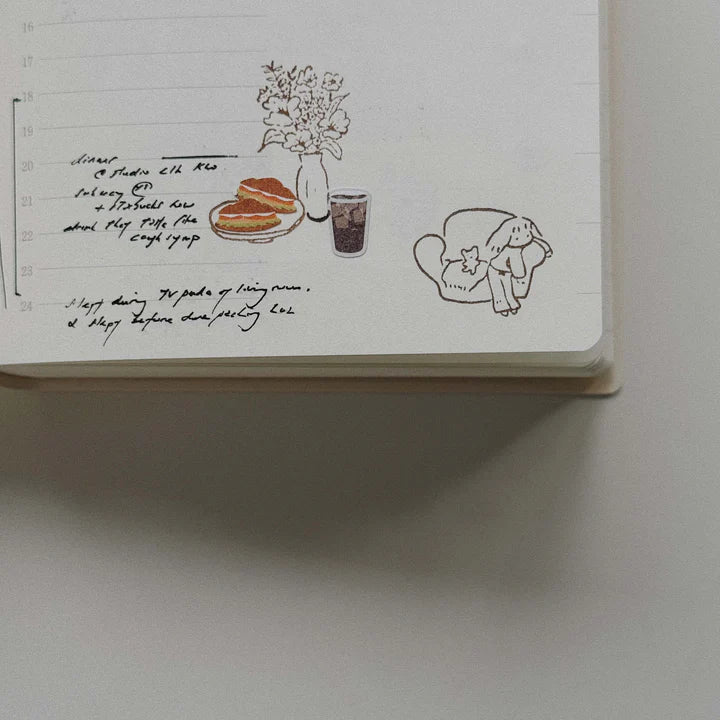 16
17
18
19
20
21
22
23
24
dinner
@ studio
subway
+ Starbucks
drink they taste like
cough syrup
slept during TV of living room.
& slept before done packing LOL